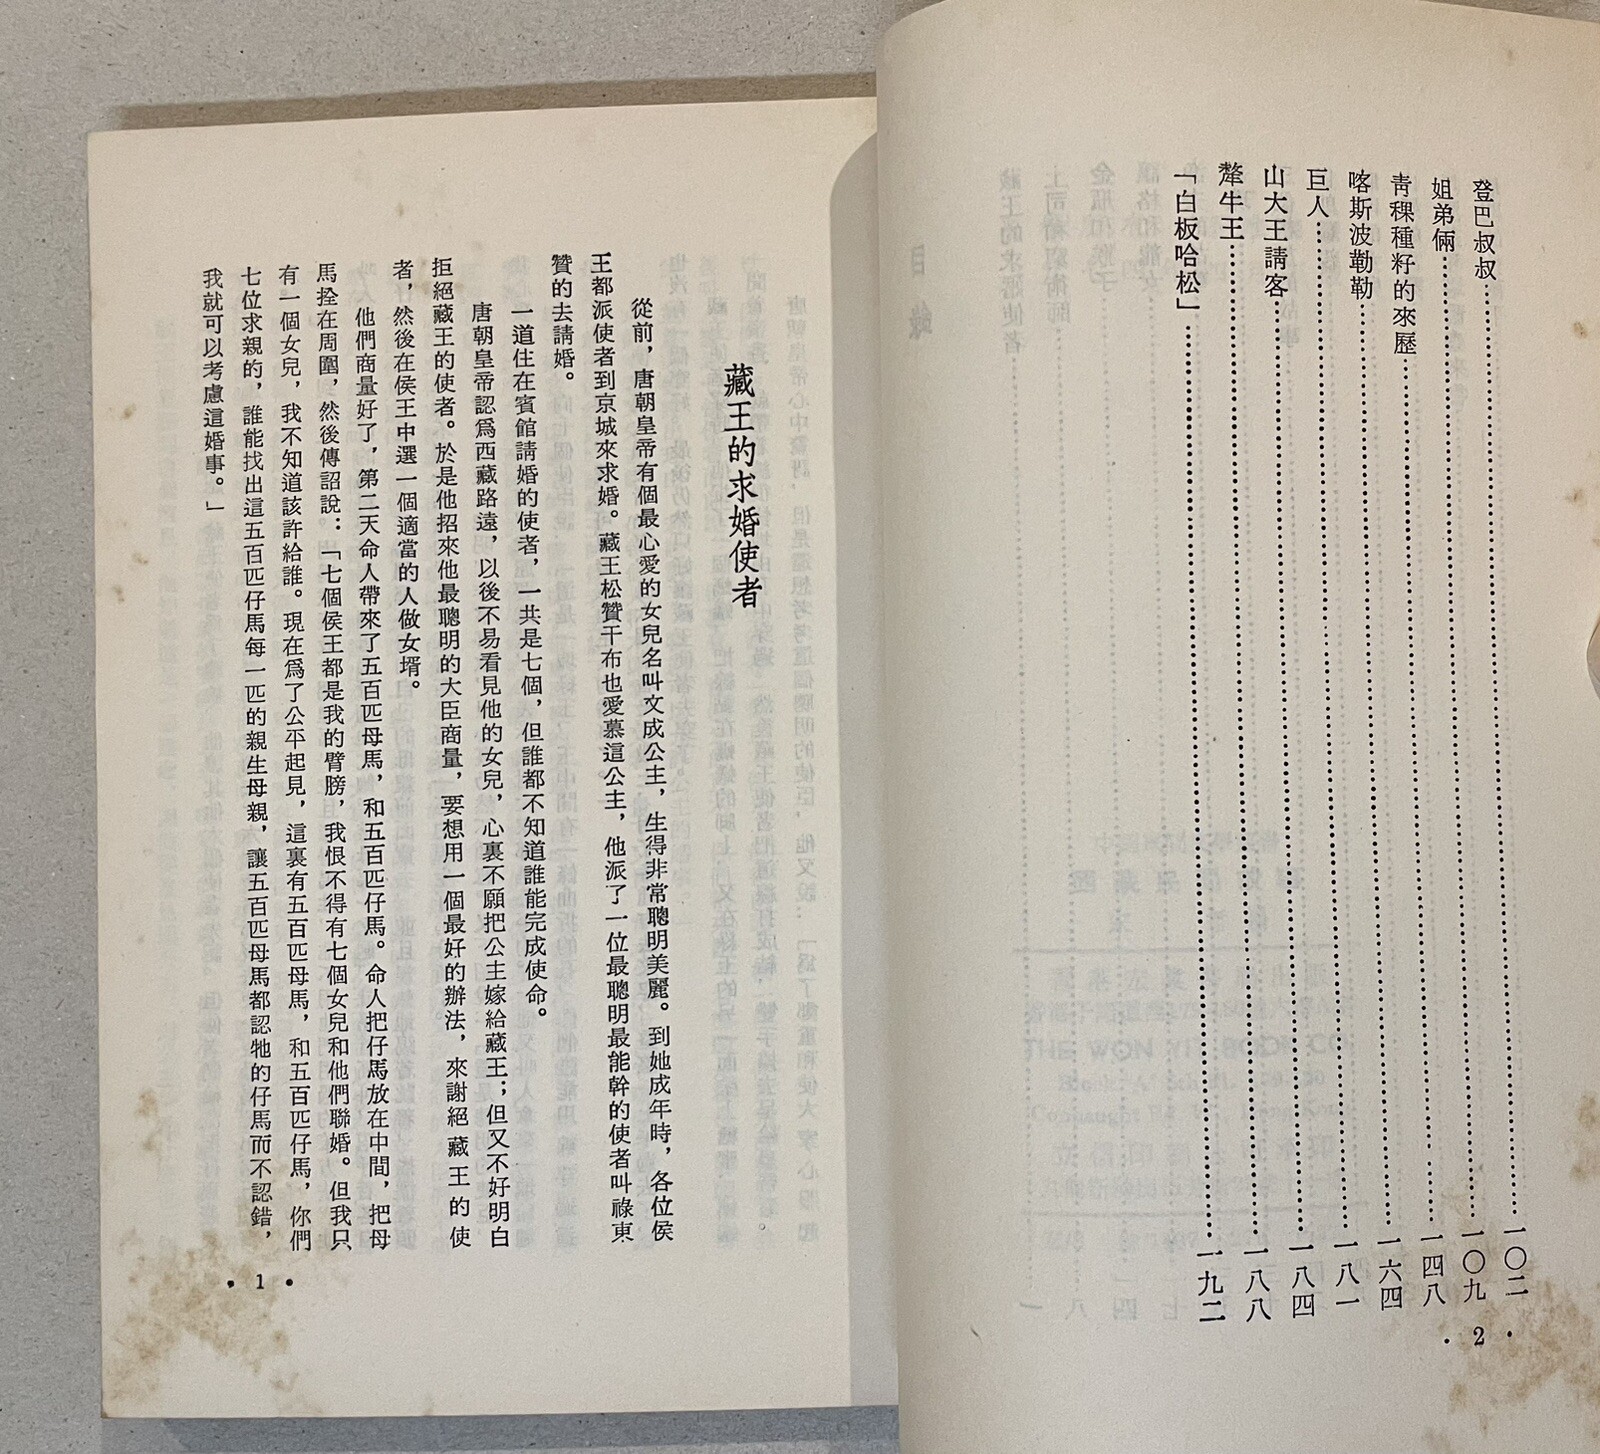 登巴叔叔……一〇二
姐弟倆……一〇九
靑稞種籽的來歷……一四八
喀斯波勒勒……一六四
巨人……一八一
山大王請客……一八四
犛牛王……一八八
「白板哈松」……一九二
• 2 •
藏王的求婚使者
從前，唐朝皇帝有個最心愛的女兒名叫文成公主，生得非常聰明美麗。到她成年時，各位侯
王都派使者到京城來求婚。藏王松贊干布也愛慕這公主，他派了一位最聰明最能幹的使者叫祿東
贊的去請婚。
一道住在賓館請婚的使者，一共是七個，但誰都不知道誰能完成使命。
唐朝皇帝認爲西藏路遠，以後不易看見他的女兒，心裏不願把公主嫁給藏王；但又不好明白
拒絕藏王的使者。於是他招來他最聰明的大臣商量，要想用一個最好的辦法，來謝絕藏王的使
者，然後在侯王中選一個適當的人做女壻。
他們商量好了，第二天命人帶來了五百匹母馬，和五百匹仔馬。命人把仔馬放在中間，把母
馬拴在周圍，然後傳詔說：「七個侯王都是我的臂膀，我恨不得有七個女兒和他們聯婚。但我只
有一個女兒，我不知道該許給誰。現在爲了公平起見，這裏有五百匹母馬，和五百匹仔馬，你們
七位求親的，誰能找出這五百匹仔馬每一匹的親生母親，讓五百匹母馬都認牠的仔馬而不認錯，
我就可以考慮這婚事。」
• 1 •